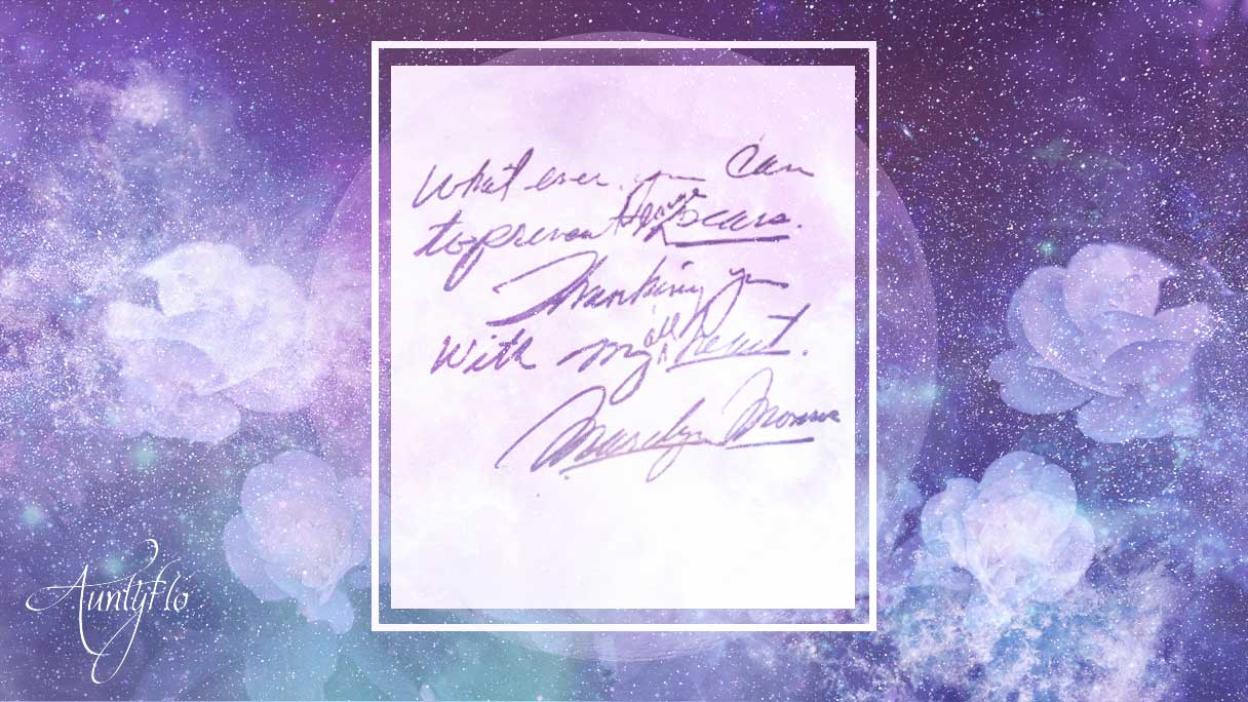 What ever you can
to prevent large scars.
Thanking you
with my all heart.
Marilyn Monroe
AuntyFlo